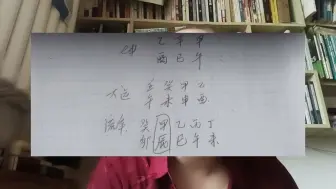 乙 辛 甲
酉 巳 午
大运 壬 癸 甲 乙
午 未 申 酉
流年 癸 甲 乙 丙 丁
卯 辰 巳 午 未